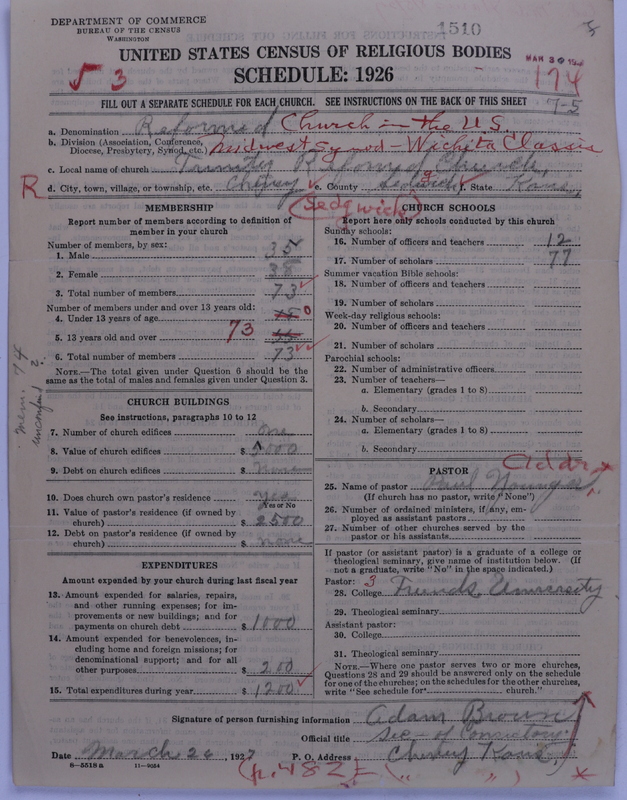 DEPARTMENT OF COMMERCE
BUREAU OF THE CENSUS
WASHINGTON
1510
UNITED STATES CENSUS OF RELIGIOUS BODIES
SCHEDULE: 1926
MAR 30
53
174
7-5
FILL OUT A SEPARATE SCHEDULE FOR EACH CHURCH. SEE INSTRUCTIONS ON THE BACK OF THIS SHEET
a. Denomination Reformed Church in the U.S.
b. Division (Association, Conference, Diocese, Presbytery, Synod, etc.) Midwest Synod - Wichita Classis
c. Local name of church Trinity Reformed Church,
R d. City, town, village, or township, etc. Cheney e. County Sedgwick f. State Kans,
(Sedgwick)
MEMBERSHIP
Report number of members according to definition of
member in your church
Number of members, by sex:
1. Male 35
2. Female 38
3. Total number of members 73
Number of members under and over 13 years old:
4. Under 13 years of age 0
5. 13 years old and over 73
6. Total number of members 73
NOTE.—The total given under Question 6 should be the
same as the total of males and females given under Question 3.
mem. 74
CHURCH BUILDINGS
See instructions, paragraphs 10 to 12
7. Number of church edifices one
8. Value of church edifices $ 5000
9. Debt on church edifices $ none
10. Does church own pastor's residence yes
Yes or No
11. Value of pastor's residence (if owned by
church) $ 2500
12. Debt on pastor's residence (if owned by
church) $ none
EXPENDITURES
Amount expended by your church during last fiscal year
13. Amount expended for salaries, repairs,
and other running expenses; for im-
provements or new buildings; and for
payments on church debt $ 1000
14. Amount expended for benevolences, in-
cluding home and foreign missions; for
denominational support; and for all
other purposes $ 200
15. Total expenditures during year $ 1200
CHURCH SCHOOLS
Report here only schools conducted by this church
Sunday schools:
16. Number of officers and teachers 12
17. Number of scholars 77
Summer vacation Bible schools:
18. Number of officers and teachers
19. Number of scholars
Week-day religious schools:
20. Number of officers and teachers
21. Number of scholars
Parochial schools:
22. Number of administrative officers
23. Number of teachers—
a. Elementary (grades 1 to 8)
b. Secondary
24. Number of scholars—
a. Elementary (grades 1 to 8)
b. Secondary
PASTOR
Addr *
25. Name of pastor Paul
(If church has no pastor, write "None")
26. Number of ordained ministers, if any, em-
ployed as assistant pastors
27. Number of other churches served by the
pastor or his assistants
If pastor (or assistant pastor) is a graduate of a college or
theological seminary, give name of institution below. (If
not a graduate, write "No" in the space indicated.)
Pastor: 3
28. College Friends University
29. Theological seminary
Assistant pastor:
30. College
31. Theological seminary
NOTE.—Where one pastor serves two or more churches,
Questions 28 and 29 should be answered only on the schedule
for one of the churches; on the schedules for the other churches,
write "See schedule for church."
Signature of person furnishing information Adam Brown
Official title Sec - of Consistory
Date March 26, 1927 P. O. Address Cheney Kans,
8—5518 a 11—9024
(p. 482
*